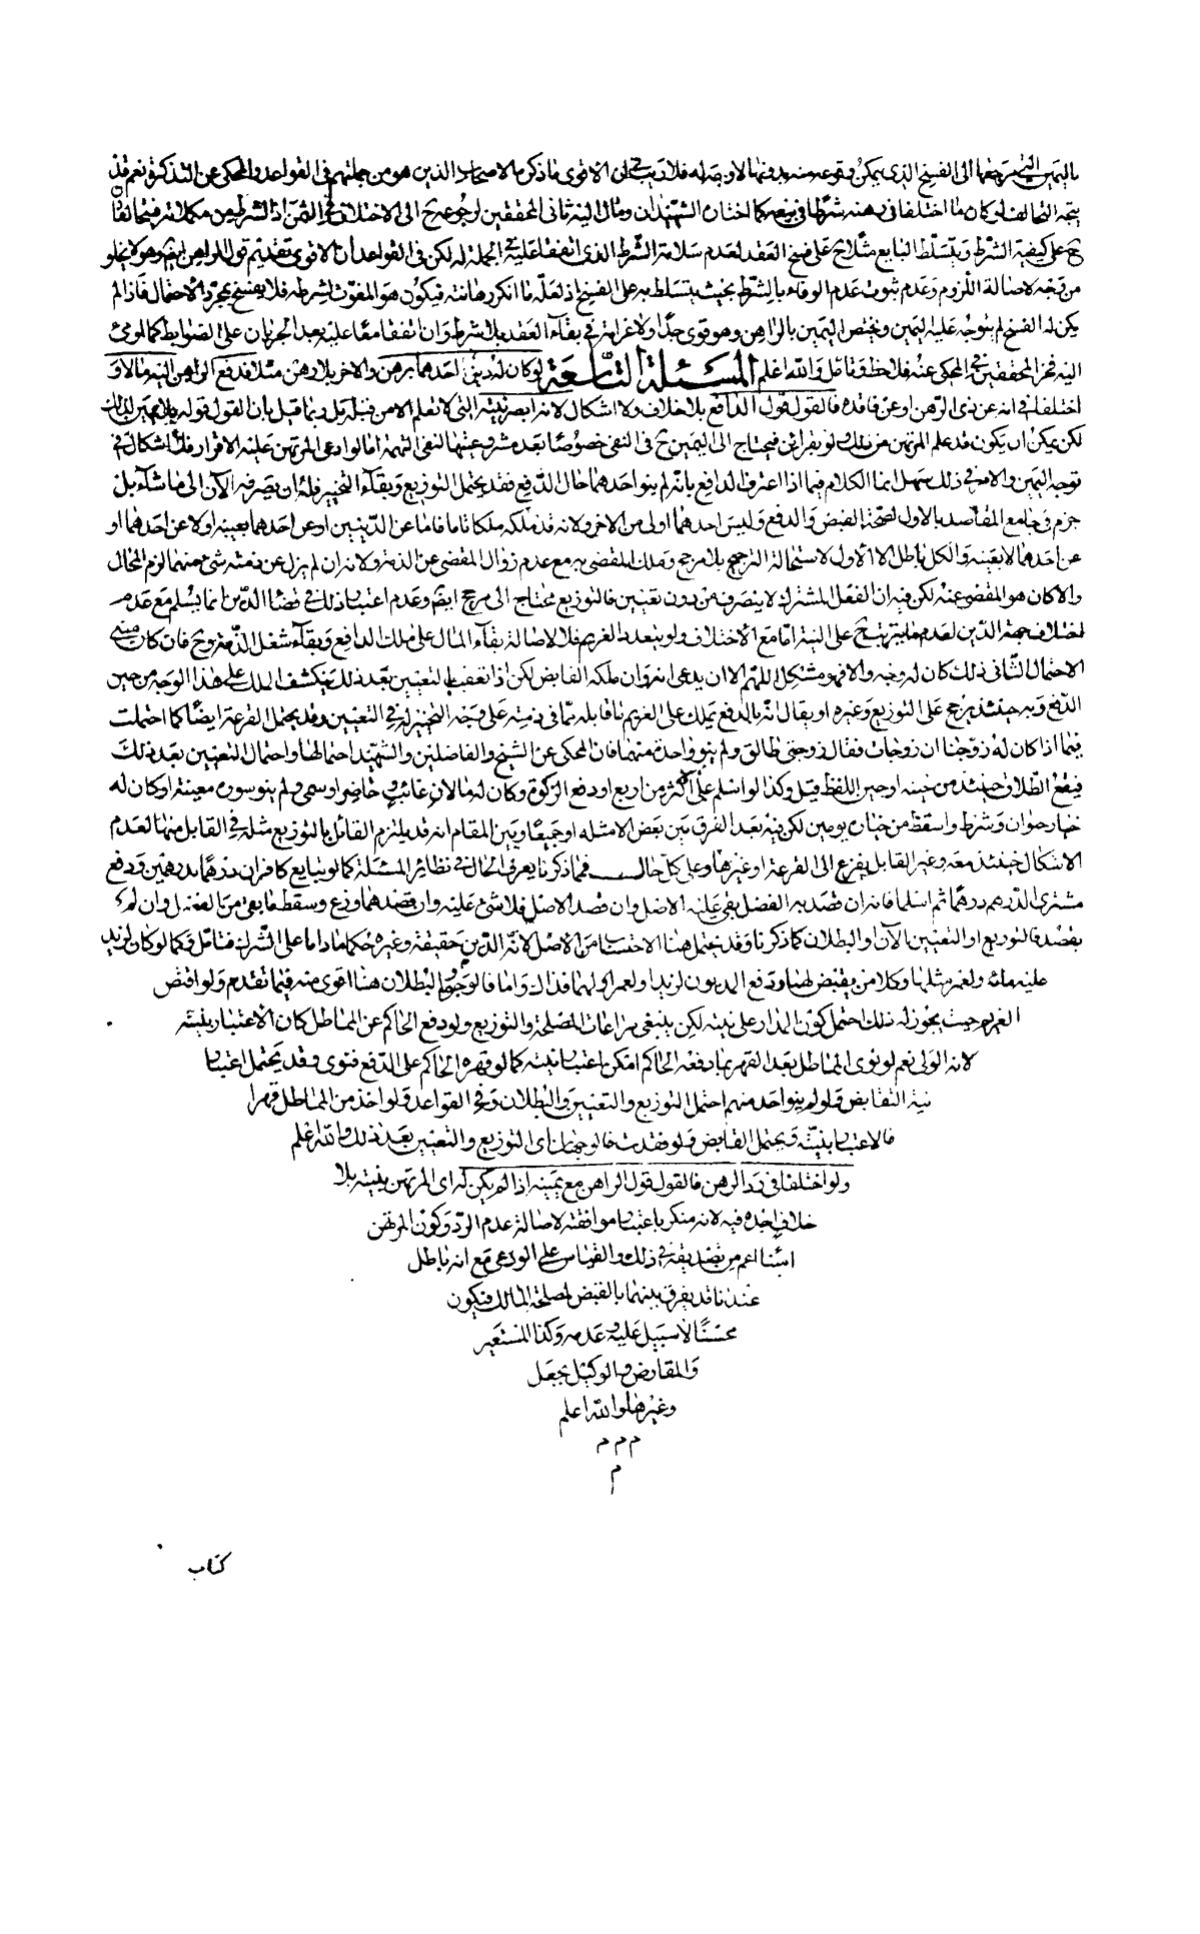 باليمين التى مرجعها الى الفسخ الذى يمكن وقوعه منه بدونها لا وجه له فلا ريب ح ان الاقوى ما ذكره الاصحاب الذين هو من جملتهم فى القواعد والمحكى عن التذكرة نعم قد
يتجه التحالف لو كان ما اختلفا فى رهنه شرطا فى بيع كما اختاره الشهيدان ومال اليه ثانى المحققين لرجوعه ح الى الاختلاف فى الثمن اذ الشرط من مكملاته فيتحالفان
ح على كيفية الشرط ويتسلط البايع مثلا ح على فسخ العقد لعدم سلامة الشرط الذى اتفقا عليه فى الجملة له لكن فى القواعد ان الاقوى تقديم قول الراهن ايضا وهو لا يخلو
من وجه لاصالة اللزوم وعدم ثبوت عدم الوفاء بالشرط بحيث يتسلط به على الفسخ اذ لعله ما انكر رهانته فيكون هو المفوت لشرطه فلا يفسخ بمجرد الاحتمال فاذا لم
يكن له الفسخ لم يتوجه عليه اليمين ويختص اليمين بالراهن وهو قوى جدا ولا غرابة فى بقاء العقد بلا شرط وان اتفقا معا عليه بعد الجريان على الضوابط كما لومى
اليه فخر المحققين فى المحكى عنه فلاحظ وتامل والله اعلم المسئلة التاسعة لو كان له دينان احدهما برهن والاخر بلا رهن مثلا فدفع الراهن اليه مالا و
اختلفا فى انه عن ذى الرهن او عن فاقده فالقول قول الدافع بلا خلاف ولا اشكال لانه ابصر بنيته التى لا تعلم الا من قبله بل ربما قيل بان القول قوله بلا يمين لذلك
لكن يمكن ان يكون قد علم المرتهن من ذلك لو بقرائن فيحتاج الى اليمين ح فى النفى خصوصا بعد مشروعيتها لنفى التهمة اما لو ادعى المرتهن عليه الاقرار فلا اشكال فى
توجه اليمين والامر فى ذلك سهل انما الكلام فيما اذا اعترف الدافع بانه لم ينو احدهما حال الدفع فقد يحتمل التوزيع وبقاء التخيير فله ان يصرفه الآن الى ما شآء بل
جزم فى جامع المقاصد بالاول لصحة القبض والدفع وليس احدهما اولى من الاخر ولانه قد ملكه ملكا تاما فاما عن الدينين او عن احدهما بعينه او لا عن احدهما او
عن احدهما لا بعينه والكل باطل الا الاول لاستحالة الترجيح بلا مرجح وملك المقضى به مع عدم زوال المقضى عن الذمة ولانه ان لم يزل عن ذمته شئ منهما لزم المحال
والا كان هو المقضى عنه لكن فيه ان الفعل المشترك لا ينصرف من دون تعيين فالتوزيع محتاج الى مرجح ايضا وعدم اعتبار ذلك فى قضاء الدين انما يسلم مع عدم
اختلاف جهة الدين لعدم ح على النية اما مع الاختلاف ولو بتعدد الغريم فلا لاصالة بقاء المال على ملك الدافع وبقاء شغل الذمة وح فان كان مبنى
الاحتمال الثانى ذلك كان له وجه والا فهو مشكل اللهم الا ان يدعى انه وان ملكه القابض لكن اذا تعقب التعيين بعد ذلك ينكشف الملك على هذا الوجه من حين
الدفع وبه حينئذ يرجح على التوزيع وغيره او يقال انه بالدفع يملك على الغريم ما قابله مما فى ذمته على وجه التخيير له فى التعيين وقد يحتمل القرعة ايضا كما احتملت
فيما اذا كان له زوجتان او زوجات فقال زوجتى طالق ولم ينو واحدة منهما فان المحكى عن الشيخ والفاضلين والشهيد احتمالها واحتمال التعيين بعد ذلك
فيقع الطلاق حينئذ من حينه او حين اللفظ قيل وكذا لو اسلم على اكثر من اربع او دفع الزكوة وكان له مالان غائب وحاضر او سمى ولم ينو سورة معينة او كان له
خيار حيوان وشرط واسقط من خياره يومين لكن فيه بعد الفرق بين بعض الامثلة او جميعا وبين المقام انه قد يلتزم القائل بالتوزيع مثله فى القابل منها لعدم
الاشكال حينئذ معه وغير القابل يفزع الى القرعة او غيرها وعلى كل حال فمما ذكرنا يعرف الحال فى نظائر المسئلة كما لو تبايع كافران درهما بدرهمين ودفع
مشترى الدرهم درهما ثم اسلما فانه ان قصد به الفضل بقى عليه الاصل وان قصد الاصل فلا شئ عليه وان قصدهما وزع وسقط ما بقى من الفضل وان لم
يقصد فالتوزيع او التعيين الآن او البطلان كما ذكرنا وقد يحتمل هنا الاحتساب من الاصل لانه الدين حقيقة وغيره حكما ما داما على الشرك فتامل وكما لو كان لزيد
عليه مائة ولعمرو مثلها وكلا من يقبض لهما ودفع المديون لزيد او لعمرو او لهما فذاك واما فالوجوه والبطلان هنا اقوى منه فيما تقدم ولو اقتص
الغريم حيث يجوز له ذلك احتمل كون المدار على نيته لكن ينبغى مراعات المصلحة والتوزيع ولو دفع الحاكم عن المماطل كان الاعتبار بنيته
لانه الولى نعم لو نوى المماطل بعد القهر بما دفعه الحاكم امكن اعتبار نيته كما لو قهره الحاكم على الدفع فنوى وقد يحتمل اعتبار
نية التقابض ولو لم ينو احد منهم احتمل التوزيع والتعيين والبطلان وفى القواعد ولو اخذ من المماطل قهرا
فالاعتبار بنيته ويحتمل القابض ولو فقدت فالوجهان اى التوزيع والتعيين بعد ذلك والله اعلم
ولو اختلفا فى رد الرهن فالقول قول الراهن مع يمينه اذا لم يكن له اى المرتهن بينة بلا
خلاف اجده فيه لانه منكر باعتبار موافقته لاصالة عدم الرد وكون المرتهن
امينا اعم من تصديقه فى ذلك والقياس على الودعى مع انه باطل
عندنا قد يفرق بينهما بالقبض لمصلحة المالك فيكون
محسنا لا سبيل عليه وعدمه وكذا المستعير
والمقارض والوكيل بجعل
وغيرها والله اعلم
م م م
م
كتاب